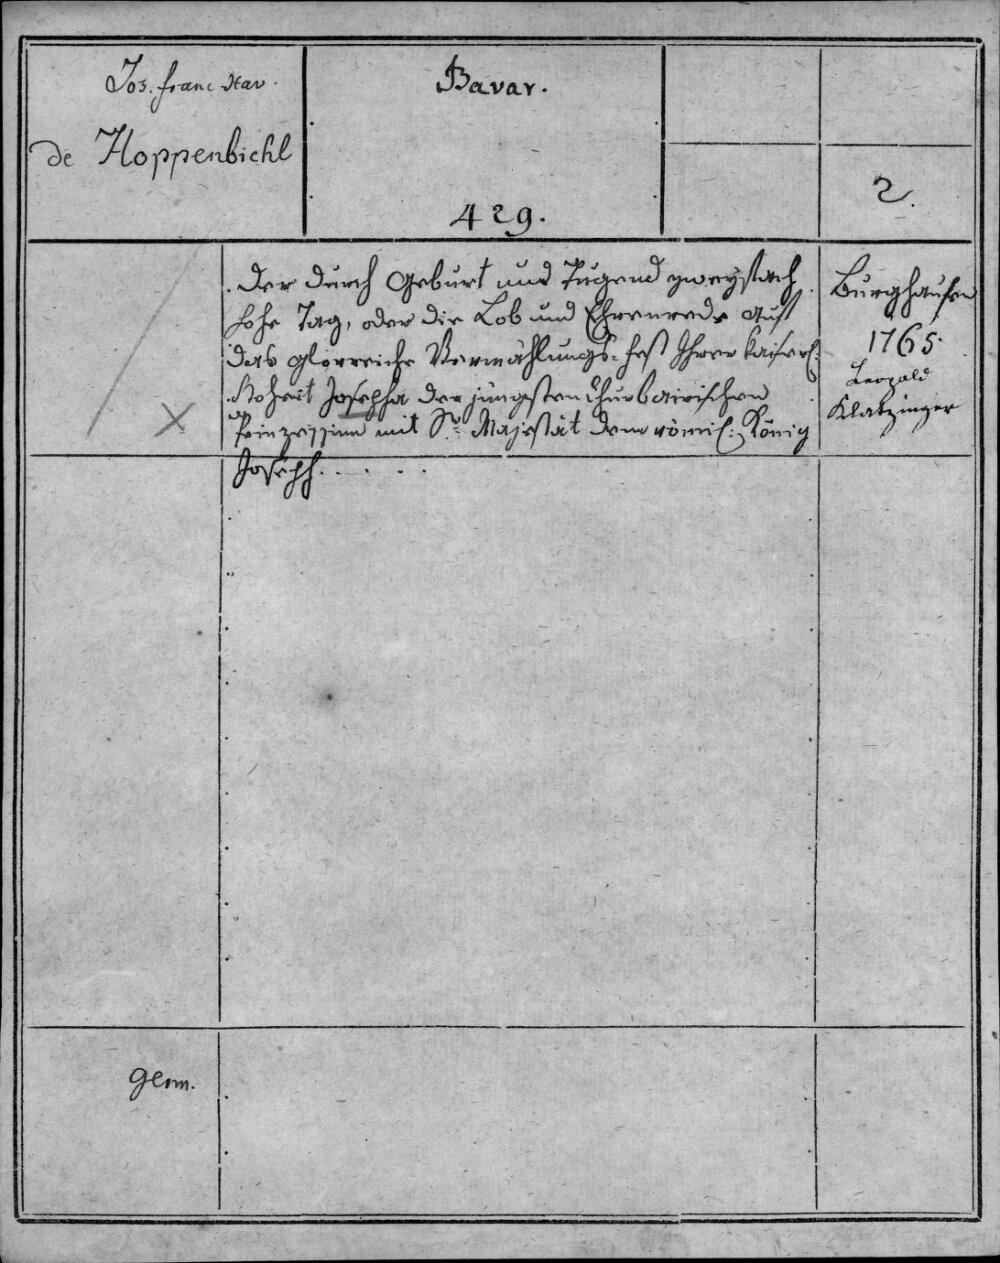 Jos. franc Xav.
de Hoppenbichl
Bavar.
429.
2.
Der durch Geburt und Tugend zweyfach
hohe Tag, oder die Lob und Ehrenrede auf
das glorreiche Vermählungs-fest Ihrer kaiserl:
Hoheit Josepha der jüngsten Churbairischen
Prinzessinn mit Sr Majestät dem römis: König
Joseph.
Burghausen
1765.
Leopold
Klatzinger
germ.